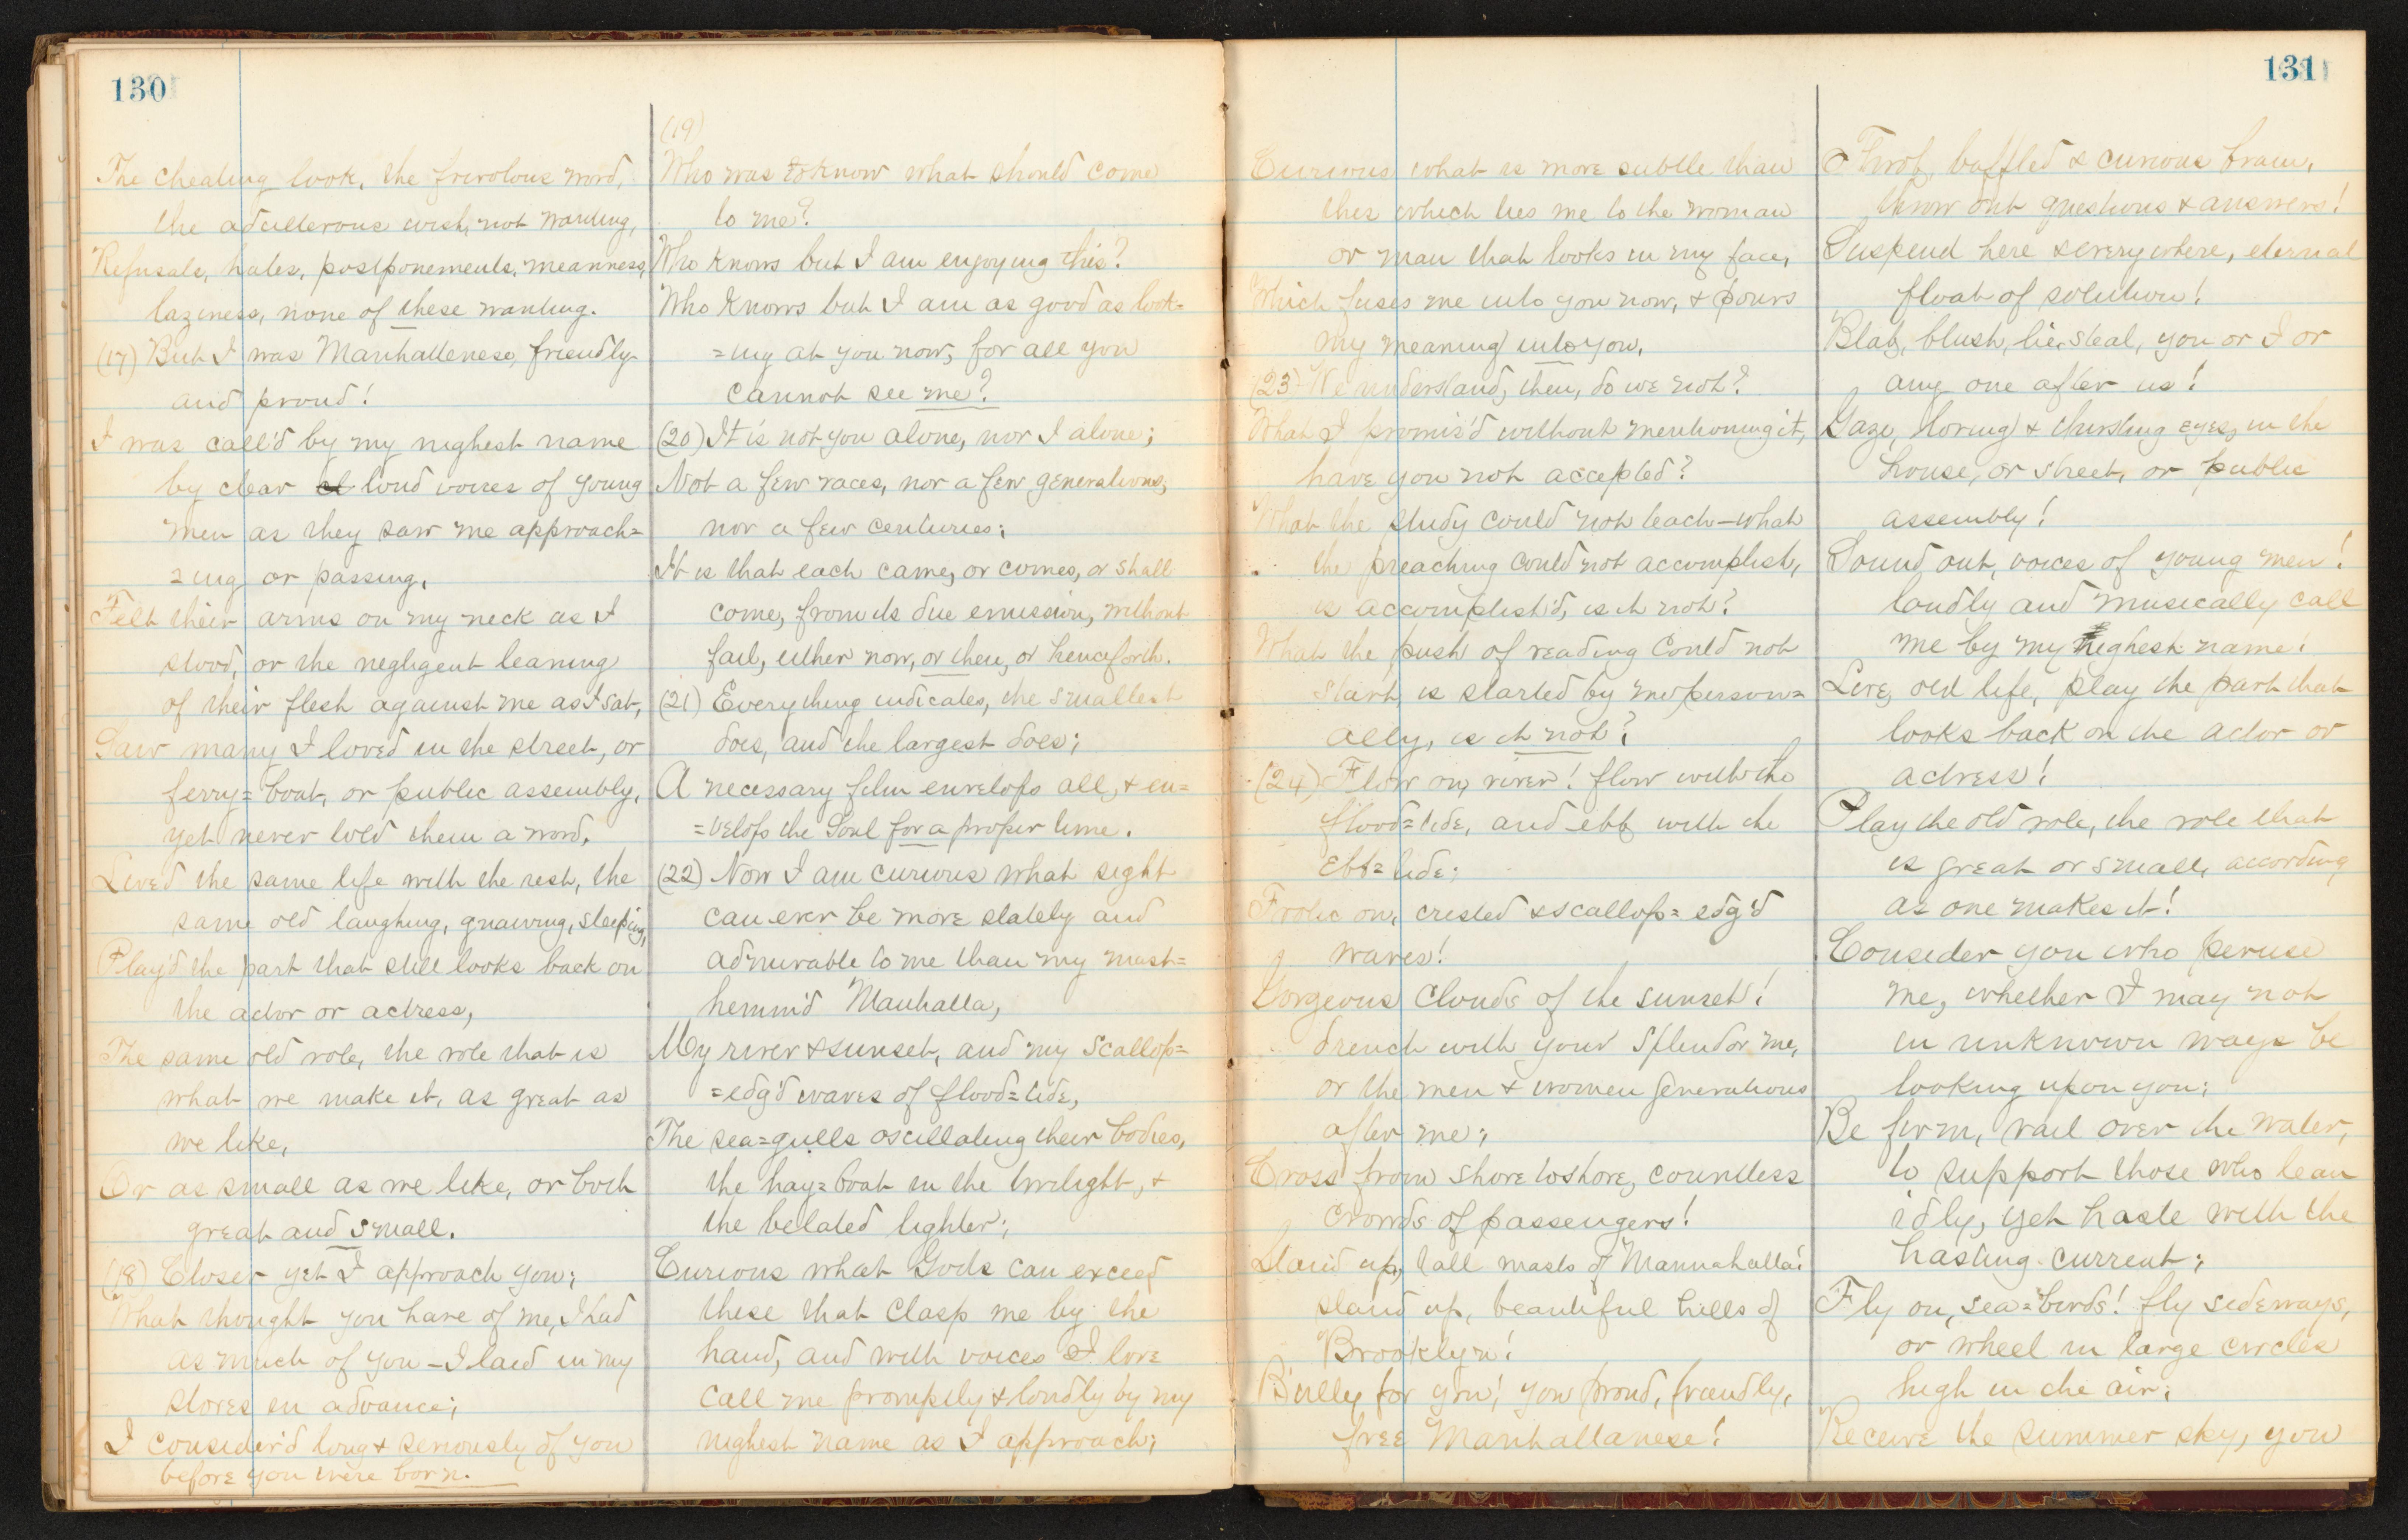 130
The cheating look, the frivolous word,
the adulterous wish, not wanting,
Refusals, hates, postponements, meanness,
laziness, none of these wanting.
(17) But I was Manhattenese, friendly
and proud!
I was call'd by my nighest name
by clear cl loud voices of young
men as they saw me approach=
=ing or passing,
Felt their arms on my neck as I
stood, or the negligent leaning
of their flesh against me as I sat,
Saw many I loved in the street, or
ferry=boat, or public assembly,
yet never told them a word,
Lived the same life with the rest, the
same old laughing, gnawing, sleeping,
Play'd the part that still looks back on
the actor or actress,
The same old role, the role that is
what we make it, as great as
we like,
Or as small as we like, or both
great and small.
(18) Closer yet I approach you;
What thought you have of me, I had
as much of you – I laid in my
stores in advance;
I consider'd long & seriously of you
before you were born.
(19)
Who was to know what should come
to me?
Who knows but I am enjoying this?
Who knows but I am as good as look=
=ing at you now, for all you
cannot see me?
(20) It is not you alone, nor I alone;
Not a few races, nor a few generations,
nor a few centuries;
It is that each came, or comes, or shall
come, from its due emission, without
fail, either now, or then, or henceforth.
(21) Everything indicates, the smallest
does, and the largest does;
A necessary film envelops all, & en=
=velops the Soul for a proper time.
(22) Now I am curious what sight
can ever be more stately and
admirable to me than my mast=
hemm'd Manhatta,
My river & sunset, and my scallop=
=edg'd waves of flood=tide,
The sea=gulls oscillating their bodies,
the hay=boat in the twilight, &
the belated lighter;
Curious what Gods can exceed
these that clasp me by the
hand, and with voices I love
call me promptly & loudly by my
nighest name as I approach;
131
Curious what is more subtle than
this which ties me to the woman
or man that looks in my face,
Which fuses me into you now, & pours
my meaning into you.
(23) We understand, then, do we not?
What I promis'd without mentioning it,
have you not accepted?
What the study could not teach – what
the preaching could not accomplish,
is accomplish'd, is it not?
What the push of reading could not
start is started by me person=
ally, is it not?
(24) Flow on, river! flow with the
flood=tide, and ebb with the
ebb=tide;
Frolic on, crested & scallop=edg'd
waves!
Gorgeous clouds of the sunset!
drench with your splendor me,
or the men & women generations
after me;
Cross from shore to shore, countless
crowds of passengers!
Stand up, tall masts of Mannahatta!
stand up, beautiful hills of
Brooklyn!
Bully for you! you proud, friendly,
free Manhattanese!
Throb, baffled & curious brain,
throw out questions & answers!
Suspend here & everywhere, eternal
float of solution!
Blab, blush, lie, steal, you or I or
any one after us!
Gaze, loving & thirsting eyes, in the
house, or street, or public
assembly!
Sound out, voices of young men!
loudly and musically call
me by my nighest name!
Live, old life, play the part that
looks back on the actor or
actress!
Play the old role, the role that
is great or small, according
as one makes it!
Consider you who peruse
me, whether I may not
in unknown ways be
looking upon you;
Be firm, rail over the water,
to support those who lean
idly, yet haste with the
hasting current;
Fly on, sea=birds! fly sideways,
or wheel in large circles
high in the air;
Receive the summer sky, you